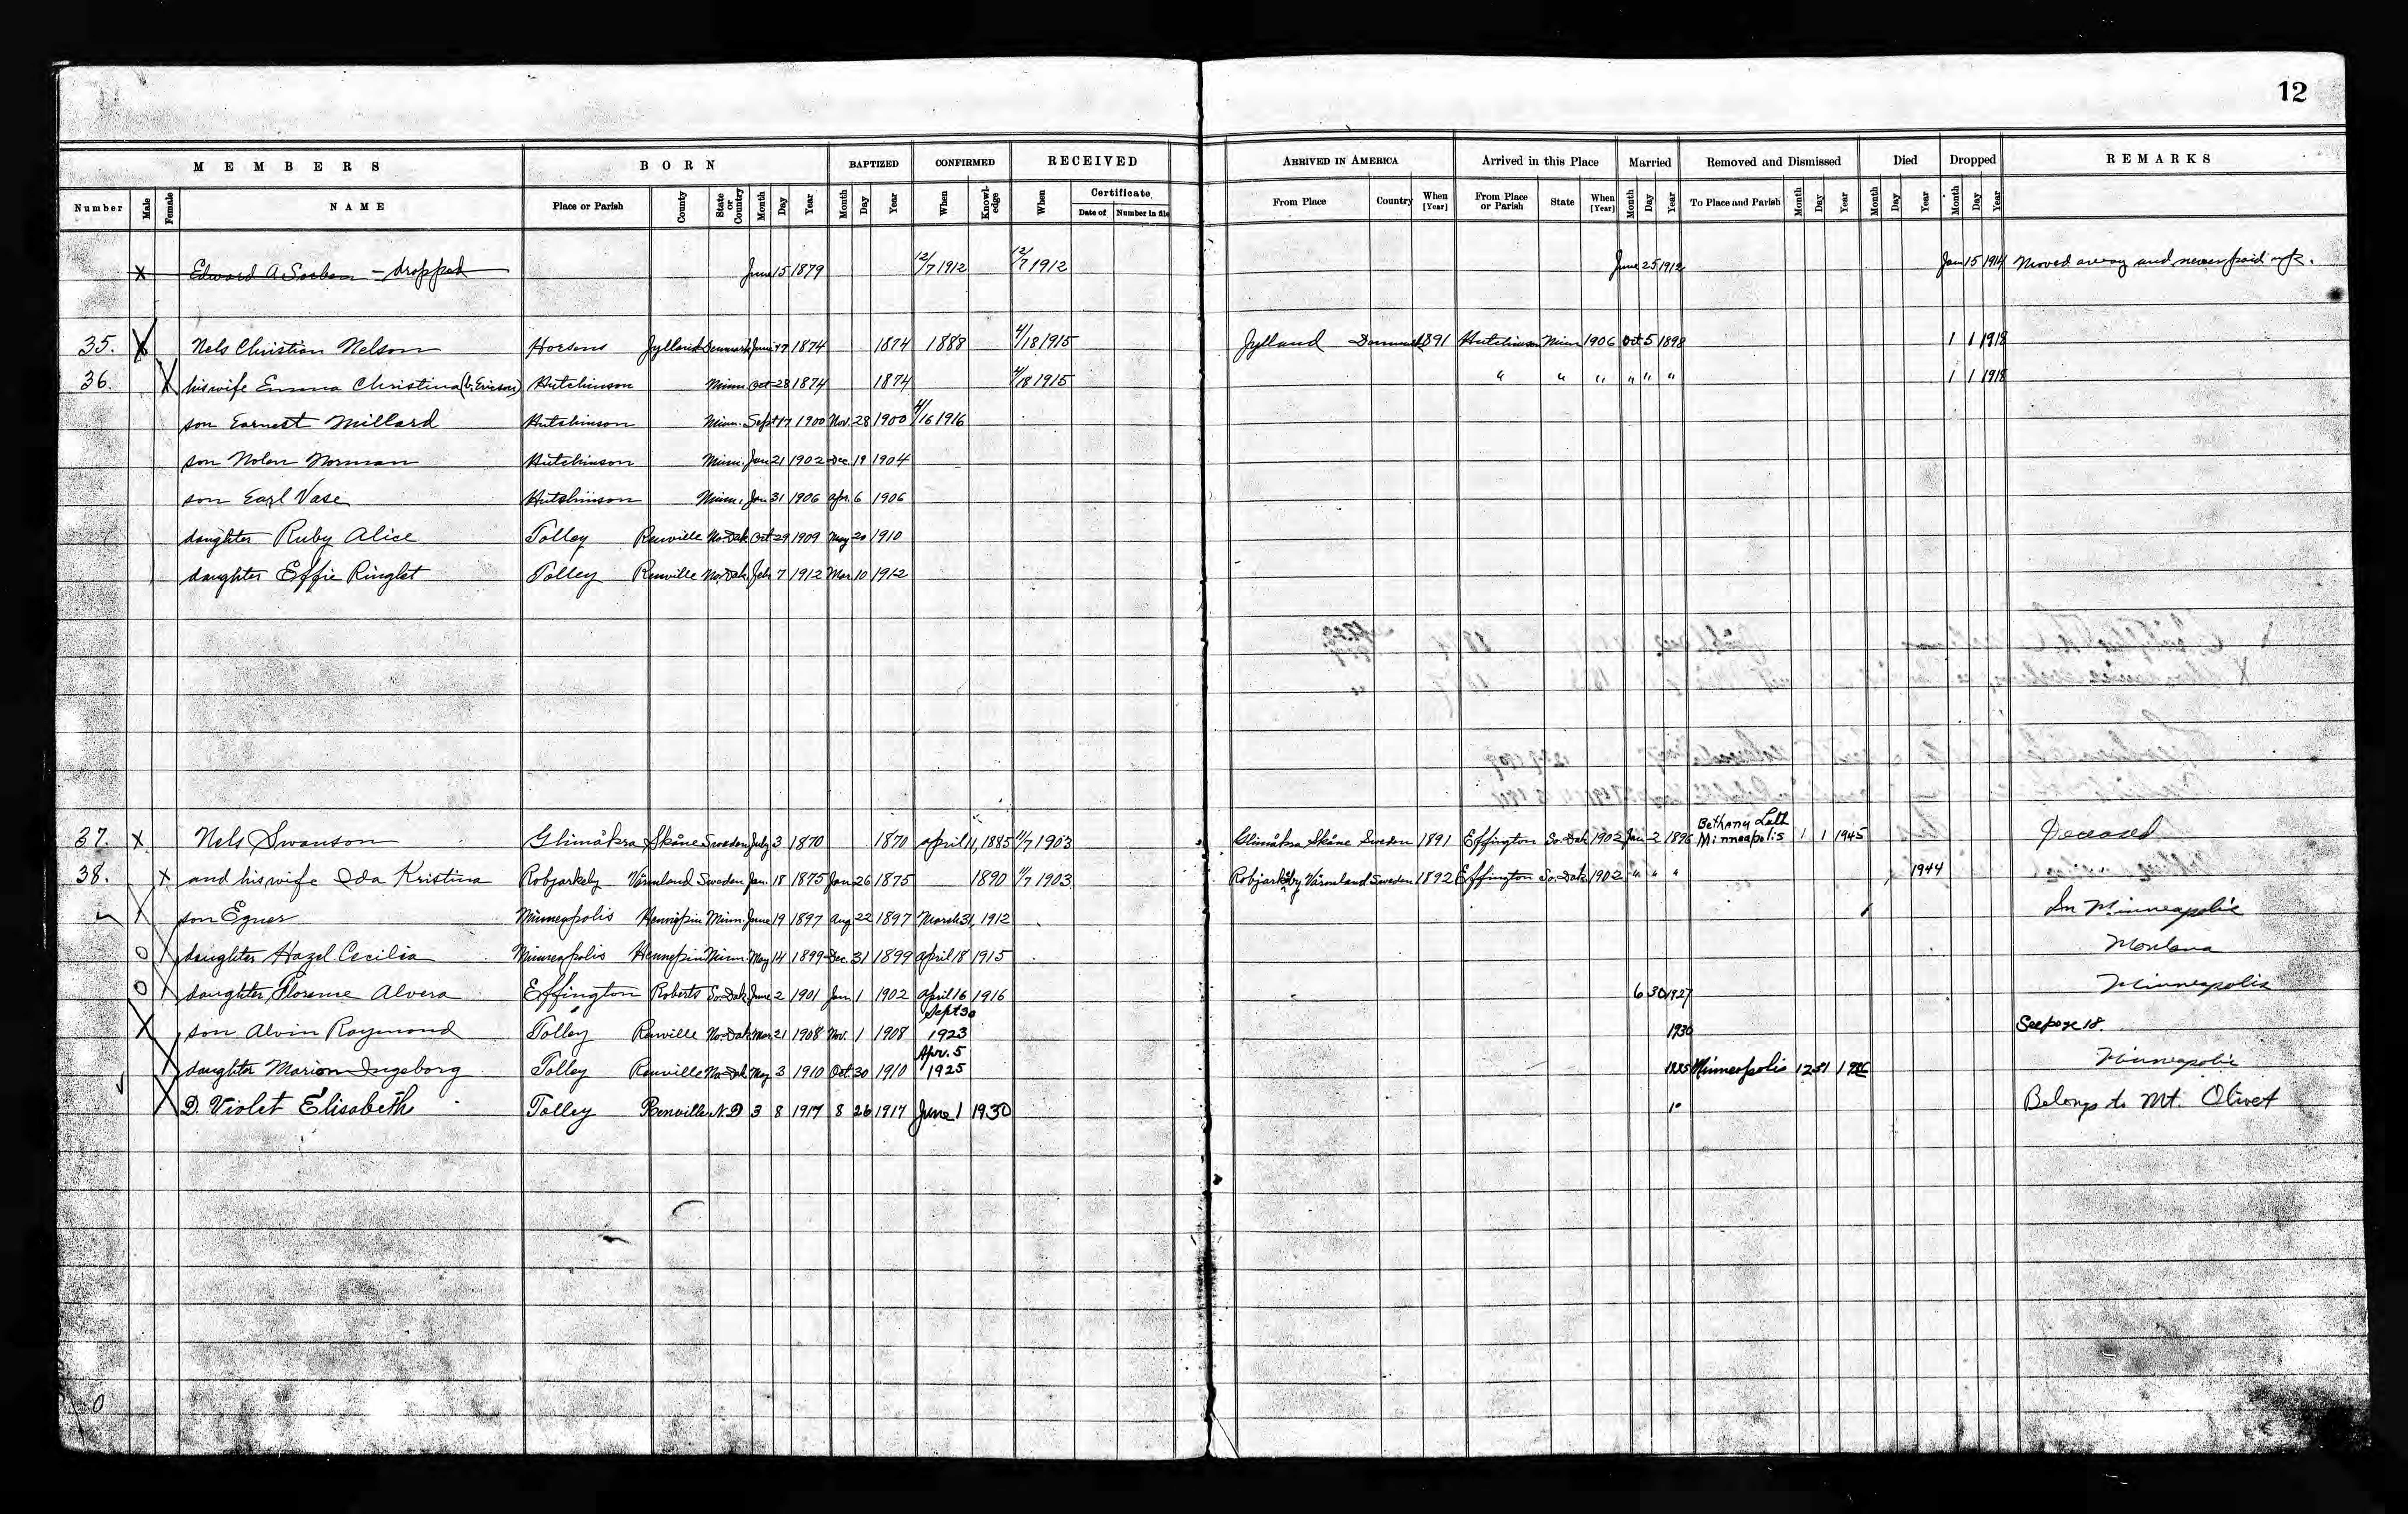 12
MEMBERS BORN BAPTIZED CONFIRMED RECEIVED ARRIVED IN AMERICA Arrived in this Place Married Removed and Dismissed Died Dropped REMARKS
Number Male Female NAME Place or Parish County State or Country Month Day Year Month Day Year When Knowl-edge When Certificate Date of Number in file From Place Country When [Year] From Place or Parish State When [Year] Month Day Year To Place and Parish Month Day Year Month Day Year Month Day Year
X Edward A. — dropped June 15 1879 12/7 1912 12/7 1912 June 25 1912 Jan 15 1914 Moved away and never paid
35. X Nels Christian Nelson Horsens Jylland Denmark June 17 1874 1874 1888 4/18 1915 Jylland Denmark 1891 Hutchinson Minn 1906 Oct 5 1898 1 1 1918
36. X his wife Emma Christina (b. Ericson) Hutchinson Minn. Oct 28 1874 1874 4/18 1915 " " " " " " 1 1 1918
son Earnest Millard Hutchinson Minn. Sept 17 1900 Nov. 28 1900 4/16 1916
son Nolan Norman Hutchinson Minn. Jan 21 1902 Dec. 19 1904
son Earl Vase Hutchinson Minn. Jan 31 1906 Apr. 6 1906
daughter Ruby Alice Tolley Renville No. Dak Oct 29 1909 May 20 1910
daughter Effie Ringlet Tolley Renville No. Dak. Feb 7 1912 Mar 10 1912
37. X Nels Swanson Glimåkra Skåne Sweden July 3 1870 1870 April 11, 1885 11/7 1903 Glimåkra Skåne Sweden 1891 Effington So. Dak 1902 Jan 2 1896 Bethany Luth Minneapolis 1 1 1945 Deceased
38. X and his wife Ida Kristina Robjarkeby Värmland Sweden Jan. 18 1875 Jan 26 1875 1890 11/7 1903 Robjarkeby Värmland Sweden 1892 Effington So. Dak. 1902 " " " 1944
X son Egner Minneapolis Hennepin Minn. June 19 1897 Aug 22 1897 March 31, 1912 In Minneapolis
O X daughter Hazel Cecilia Minneapolis Hennepin Minn. May 14 1899 Dec. 31 1899 April 18 1915 Montana
O X daughter Florence Alvera Effington Roberts So. Dak June 2 1901 Jan 1 1902 April 16 1916 6 30 1927 Minneapolis
X son Alvin Raymond Tolley Renville No. Dak. Mar. 21 1908 Nov. 1 1908 Sept 30 1923 1930 See page 18.
X daughter Marion Ingeborg Tolley Renville No. Dak May 3 1910 Oct. 30 1910 Apr. 5 1925 1935 Minneapolis 12 31 Minneapolis
X D. Violet Elisabeth Tolley Renville N.D 3 8 1917 8 26 1917 June 1 1930 Belongs to Mt. Olivet
0